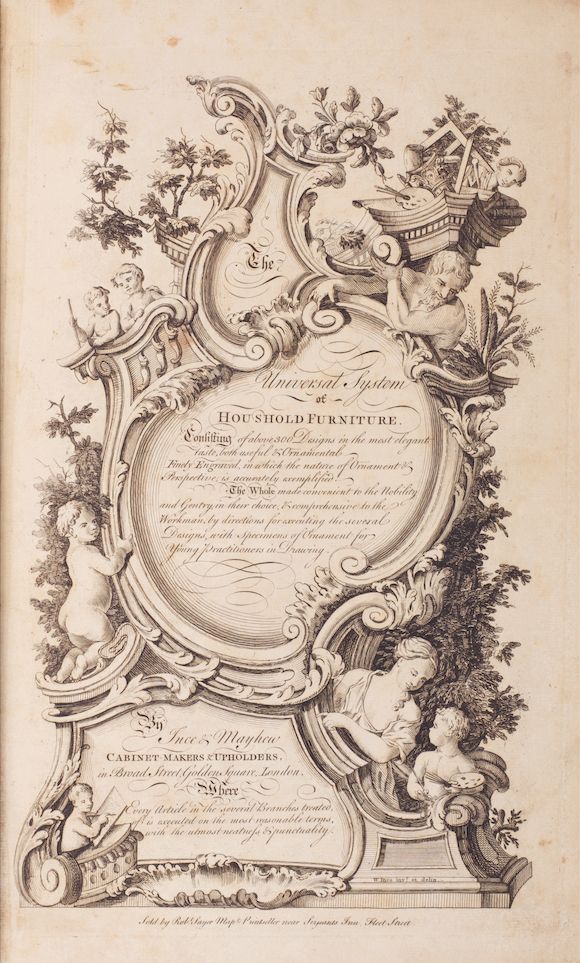 The
Universal System
of
HOUSHOLD FURNITURE.
Consisting of above 300 Designs in the most elegant
taste, both useful & Ornamental
Finely Engraved, in which the nature of Ornament &
Perspective, is accurately exemplified.
The Whole made convenient to the Nobility
and Gentry, in their choice, & comprehensive to the
Workman, by directions for executing the several
Designs, with Specimens of Ornament for
Young Practitioners in Drawing.
By
Ince & Mayhew
CABINET-MAKERS & UPHOLDERS,
in Broad Street, Golden Square, London,
Where
Every Article in the several Branches treated
of is executed on the most reasonable terms,
with the utmost neatness & punctuality.
W. Ince invt. et delin.
Sold by Robt. Sayer Map & Printseller near Serjeants Inn Fleet Street